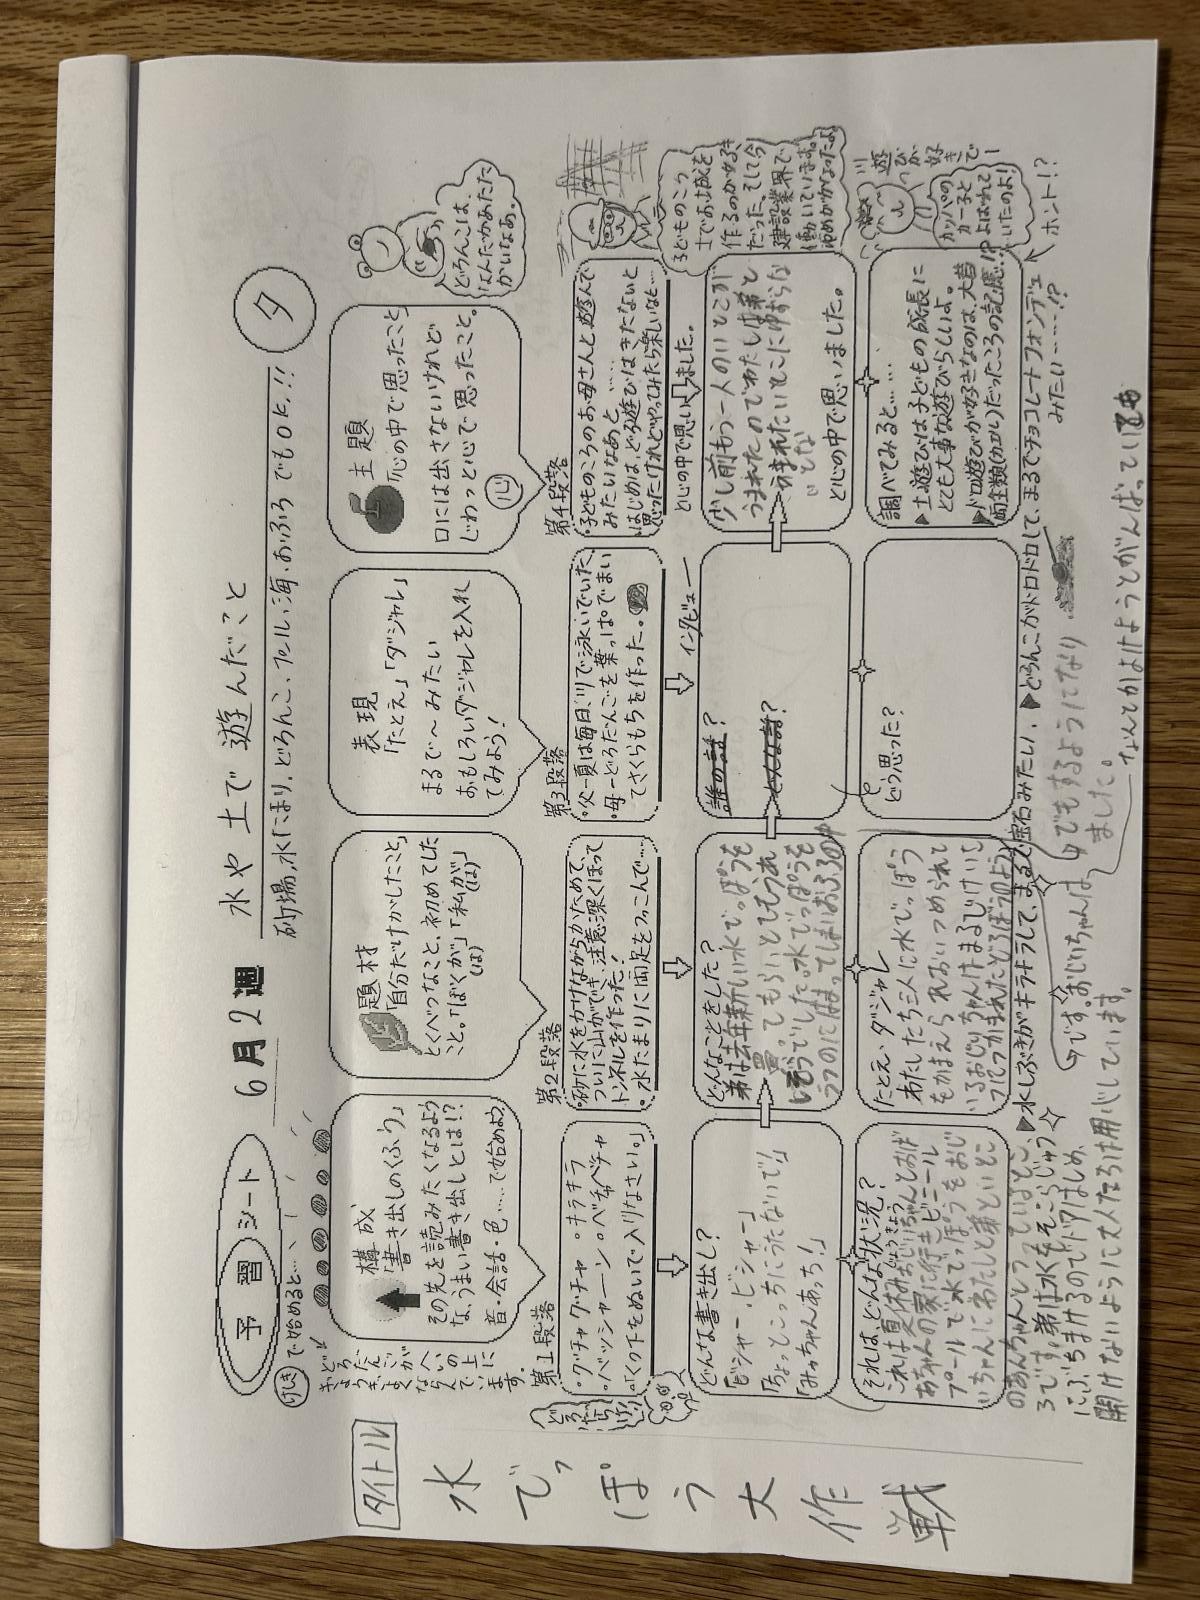 予習シート
6月2週
水や土で遊んだこと
砂場、水たまり、どろんこ、プール、海、おふろ でもOK!!
タ
けしきで始めると…
どろだんごがへいの上に
ぎょうぎよくならんでいます。
タイトル
水でっぽう大作戦
構成
「書き出しのくふう」
その先を読みたくなるよう
な、うまい書き出しとは!?
音・会話・色……で始めよう
題材
「自分だけがしたこと」
とくべつなこと、初めてした
こと。「ぼくが」「私が」
(は) (は)
表現
「たとえ」「ダジャレ」
まるで〜みたい
おもしろいダジャレを入れ
てみよう!
主題
「心の中で思ったこと」
口には出さないけれど
じわっと心で思ったこと。
心
どろんこは、
なんだかあたた
かいなぁ。
第1段落
・グチャグチャ・キラキラ
・バッシャーン・ベチャベチャ
・「くつ下をぬいで入りなさい。」
第2段落
・砂に水をかけながらかためて、
ついに山ができ、注意深くほって
トンネルを作った!
・水たまりに両足をつっこんで……
第3段落
・父―夏は毎日、川で泳いでいた。
・母―どろだんごを葉っぱでまい
てさくらもちを作った。
インタビュー
第4段落
・子どものころのお母さんと遊んで
みたいなあと……
・はじめは、どろ遊びはきたないと
思ったけれどやってみたら楽しいなと…
と心の中で思いました。
子どものころ
土でお城を
作るのが好き
だった。そして今
建設業界で
働いています。
ゆめがかなったよ
どんな書き出し?
「ビシャー・ビシャー」
「ちょっとこっちにうたないで!」
「みっちゃんあっち!」
どんなことをした?
弟は去年新しい水でっぽうを
買ってもらい
誰の話?
どんな話?
少し前もう一人のいとこが
うまれたのでわたしは弟と
うまれたいとこにゆずらな
いとな
と心の中で思いました。
川遊びが好きで
カッパの
カー子と
よばれて
いたのよ!
ホント!?
それは、どんな状況?
これは夏休みおじいちゃんとおば
あちゃんの家に行きビニール
プールで水でっぽうをおじ
いちゃんにわたしと弟といとこ
のあんちゃんとうっているとこ
ろです。弟は水をそこらじゅう
にぶちまけるのでドアはじめ、
開けないように大人たちは用心しています。
たとえ、ダジャレ
わたしたち三人に水でっぽう
をかまえられおいつめられて
いるおじいちゃんはまるでけいさ
つにつかまれたどろぼうのよう
です。おじいちゃんは
でもするようにてなり
ました。
なんとかよけようとがんばっている
どう思った?
調べてみると……
▶土遊びは子どもの成長に
とても大事な遊びらしいよ。
▶ドロ遊びが好きなのは、大昔
両生類(カエル)だったころの記憶!?
▶水しぶきがキラキラして、まるで宝石みたい。 ▶どろんこがドロドロして、まるでチョコレートフォンデュ
みたい……!?